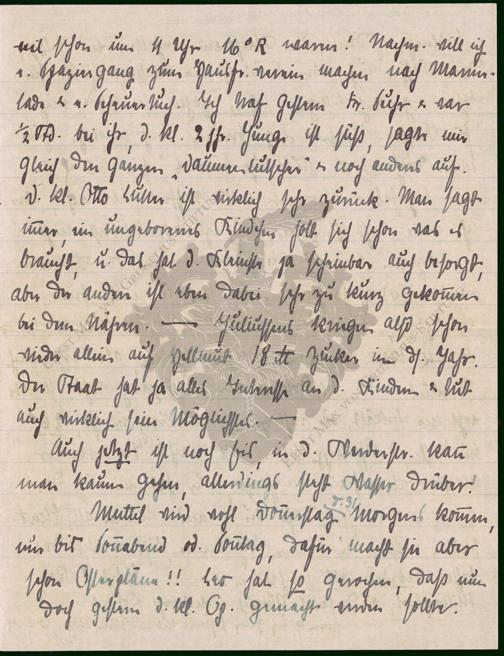 weil schon um 11 Uhr 16° R waren! Nachm. will ich
e. Spaziergang zum Hausfr. verein machen nach Marme-
lade u. e. Scheuertuch. Ich traf gestern Fr. Suhr u. war
½ Std. bei ihr, d. kl. 2 jhr. Junge ist süß, sagte mir
gleich den ganzen „Daumenlutscher" u. noch anders auf.
D. kl. Otto ist wirklich sehr zurück. Man sagt
immer, ein ungeborenes Kindchen holt sich schon was es
braucht, u. das hat d. Kleinste ja scheinbar auch besorgt,
aber der andere ist eben dabei sehr zu kurz gekommen
bei dem Nähren. — Juliussens kriegen also schon
wieder allein auf Hellmut 18 ℔ Zucker in ds. Jahr.
Der Staat hat ja alles Interesse an d. Kindern u. tut
auch wirklich sein Möglichstes. —
Auch jetzt ist noch Eis, in d. Werderstr. kann
man kaum gehen, allerdings steht Wasser drüber.
Muttel wird wohl Donnerstag Morgens kommen,
nur bis Sonnabend od. Sonntag, dafür macht sie aber
schon Osterpläne!! Leo hat so gerochen, daß nun
doch gestern d. kl. Op. gemacht werden sollte.